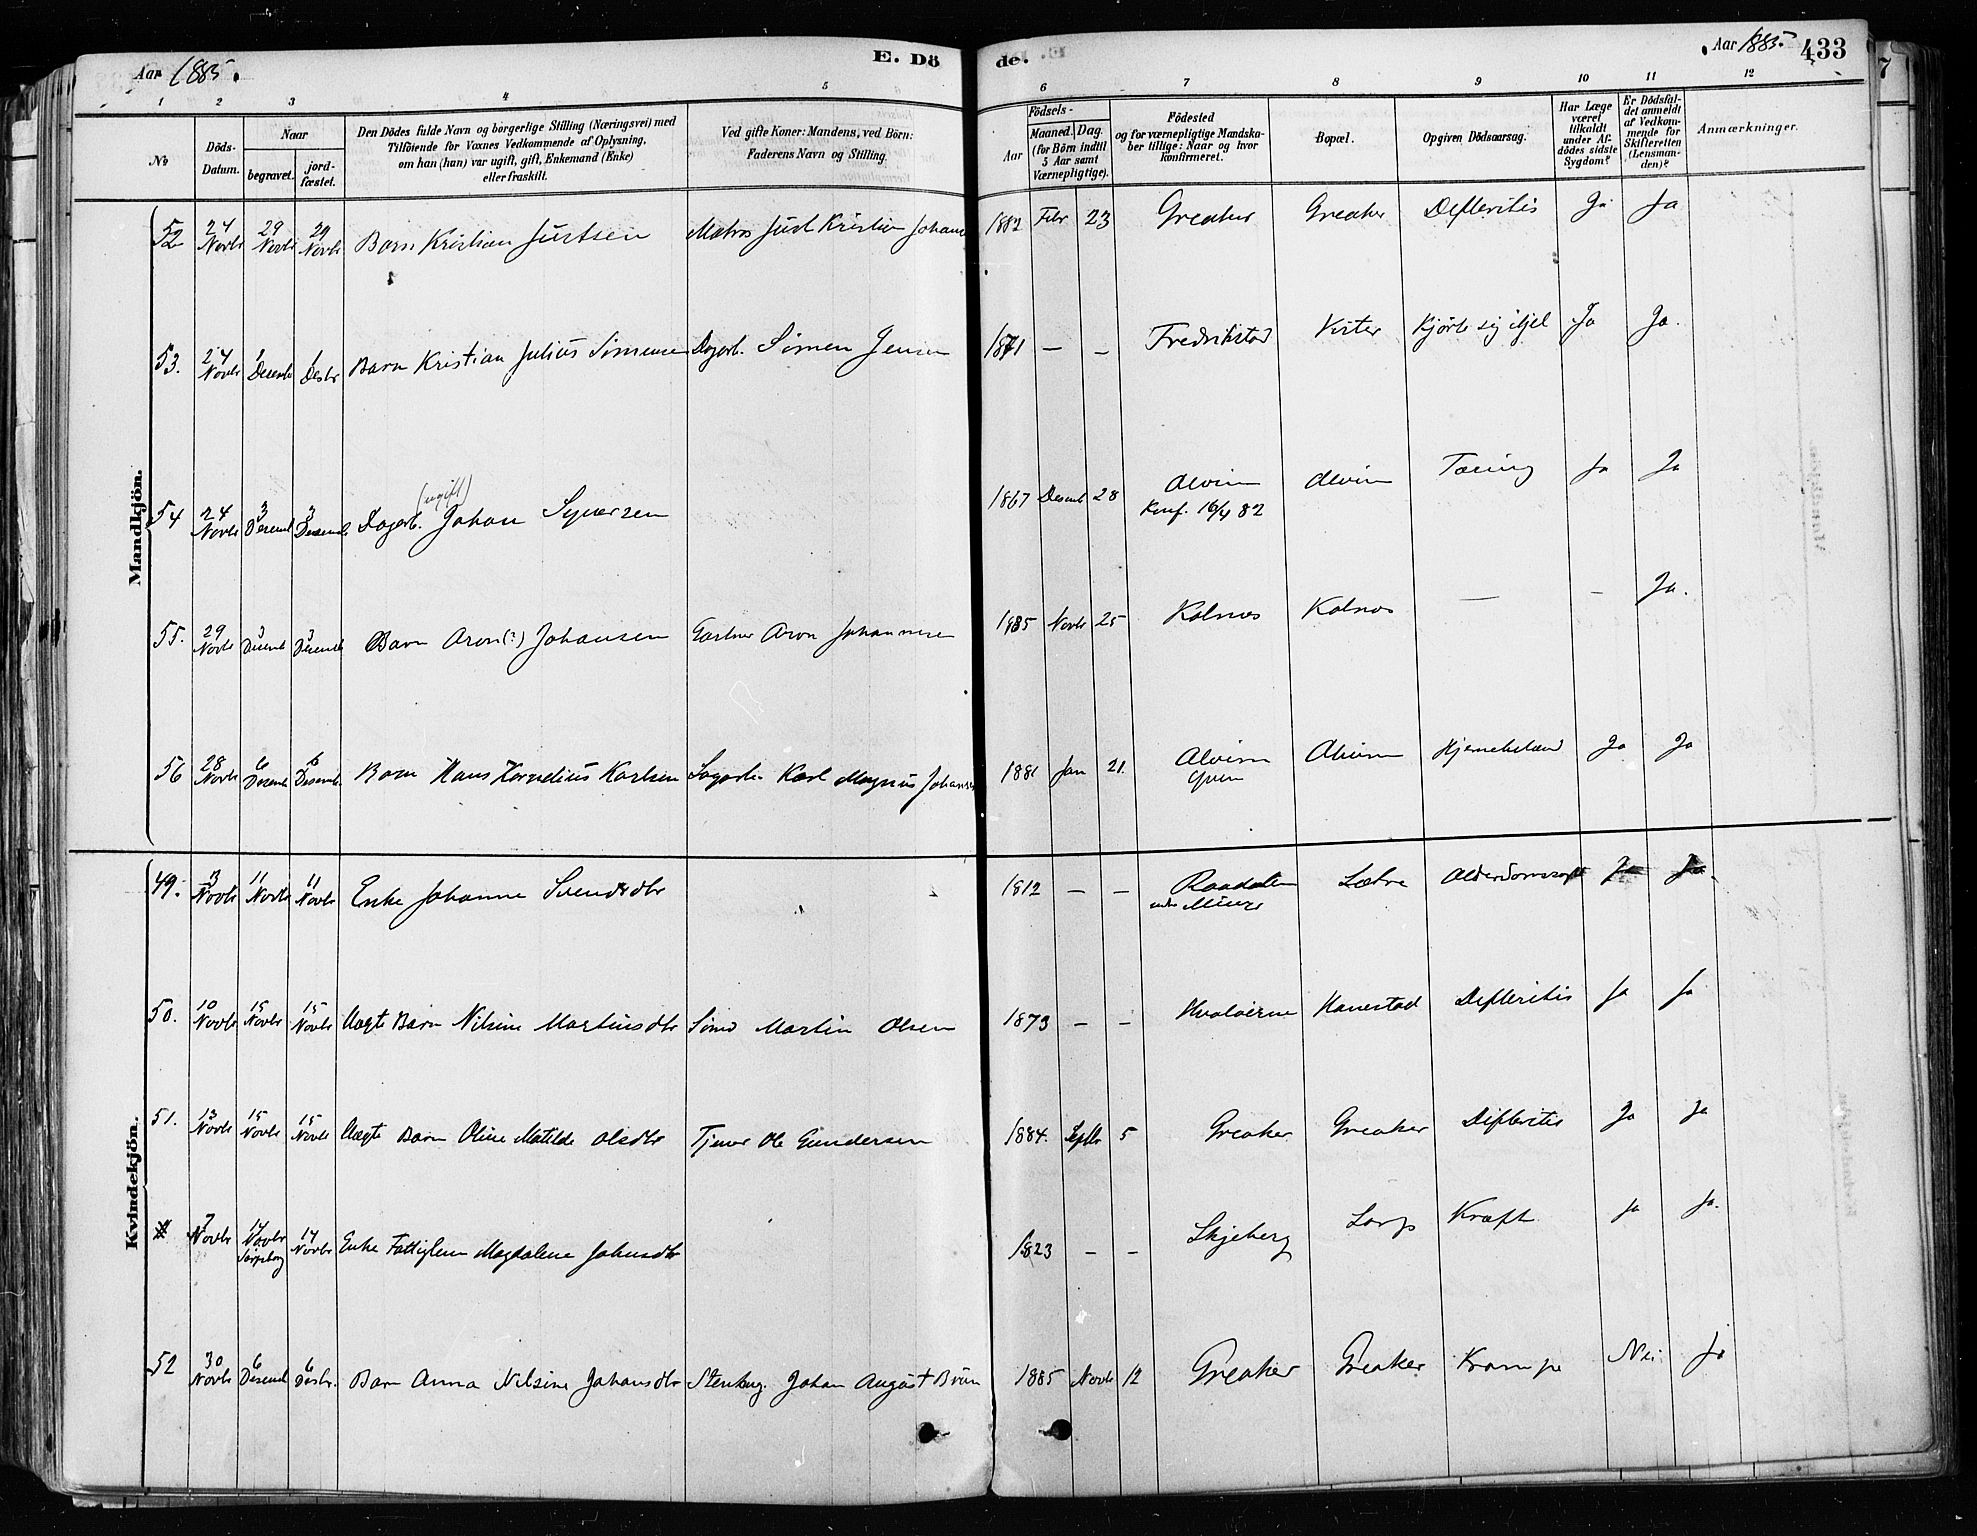 Aar 1885.
E. Döde.
Aar 1885.
433
1 2 3 4 5 6 7 8 9 10 11 12
No
Döds-Datum.
Naar
begravet.
jord-fæstet.
Den Dödes fulde Navn og borgerlige Stilling (Næringsvei) med
Tilföiende for Voxnes Vedkommende af Oplysning,
om han (hun) var ugift, gift, Enkemand (Enke)
eller fraskilt.
Ved gifte Koner: Mandens, ved Börn:
Faderens Navn og Stilling.
Födsels-
Aar
Maaned. Dag.
(for Börn indtil
5 Aar samt
Værnepligtige).
Födested
og for værnepligtige Mandska-
ber tillige: Naar og hvor
konfirmeret.
Bopæl.
Opgiven Dödsaarsag.
Har Læge
været
tilkaldt
under Af-
dödes sidste
Sygdom?
Er Dödsfal-
det anmeldt
af Vedkom-
mende for
Skifteretten
(Lensman-
den)?
Anmærkninger.
Mandkjön.
52 24 Novbr 29 Novbr 29 Novbr Barn Kristian Justsen Matros Just Kristian Johans 1882 Febr 23 Greaker Greaker Difteritis Ja Ja
53. 24 Novbr 1 Desemb 1 Desbr Barn Kristian Julius Simensen Dagarb. Simen Jensen 1871 — — Fredrikstad Vister Kjørte sig ihjel Ja Ja.
54 24 Novbr 3 Desemb 3 Desemb. Dagarb. (ugift) Johan Syversen 1867 Desemb 28 Alvim Konf. 16/4 82 Alvim Tæring Ja Ja
55. 29 Novbr 3 Desemb 3 Desemb Barn Aron(?) Johansen Gartner Aron Johannesen 1885 Novbr 25 Kalnæs Kalnæs — – Ja.
56 28 Novbr 6 Desemb 6 Desemb. Barn Hans Kornelius Karlsen Sagarb. Karl Magnus Johansen 1881 Jan 21. Alvim Alvim Hjernebetænd Ja Ja
Kvindekjön.
49. 3 Novbr 11 Novbr 11 Novbr Enke Johanne Svendsdtr 1812 — — Raadalen Alderdomssv Ja Ja.
50. 10 Novbr 15 Novbr 15 Novbr Uægte Barn Nilsine Martinsdtr Sømd Martin Olsen 1873 – – Hvaløerne Hanestad Difteritis Ja Ja
51. 13 Novbr 15 Novbr 15 Novbr Uægte Barn Oline Matilde Olsdtr Tjener Ole Gundersen 1884. Septbr 5 Greaker Greaker Difteritis Ja Ja
7 Novbr 14 Novbr Sarpsborg 14 Novbr Enke Fattiglem Magdalene Johnsdtr 1823 – – Skjeberg Kræft Ja Ja.
52 30 Novbr 6 Desemb 6 Desbr. Barn Anna Nilsine Johansdtr Stenhug. Johan August Brun 1885 Novbr 12 Greaker Greaker Krampe Nei Ja